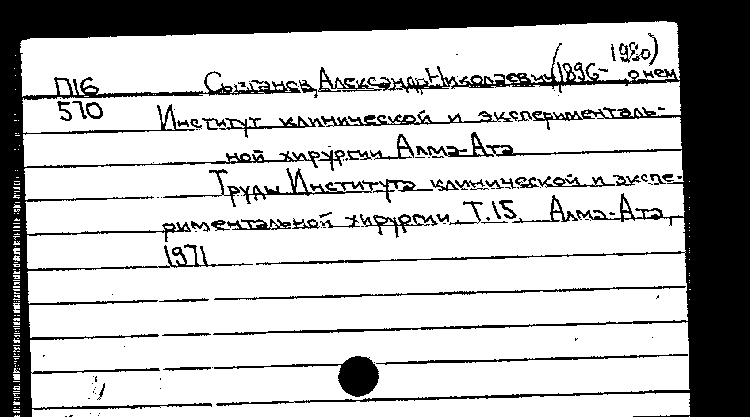 П16 Сызганов, Александр Николаевич (1896-1980), о нем
570 Институт клинической и эксперименталь-
ной хирургии. Алма-Ата
Труды Института клинической и экспе-
риментальной хирургии. Т.15. Алма-Ата,
1971